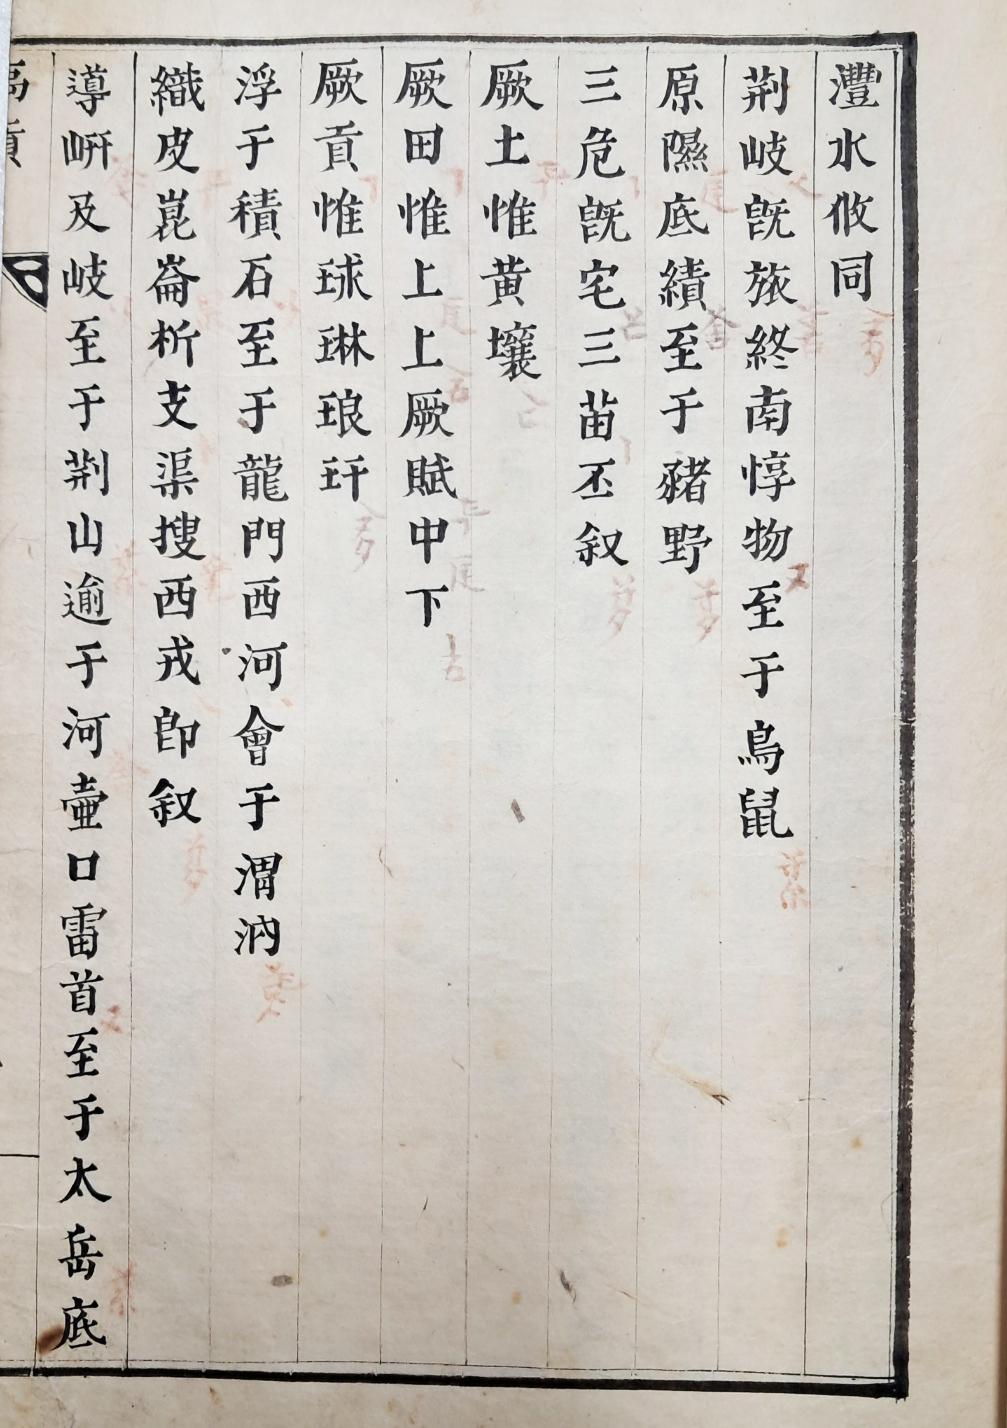 灃水攸同
荆岐旣旅終南惇物至于鳥鼠
原隰底績至于豬野
三危旣宅三苗丕叙
厥土惟黄壤
厥田惟上上厥賦中下
厥貢惟球琳琅玕
浮于積石至于龍門西河會于渭汭
織皮崑崙析支渠搜西戎即叙
導岍及岐至于荆山逾于河壷口雷首至于太岳底
禹貢